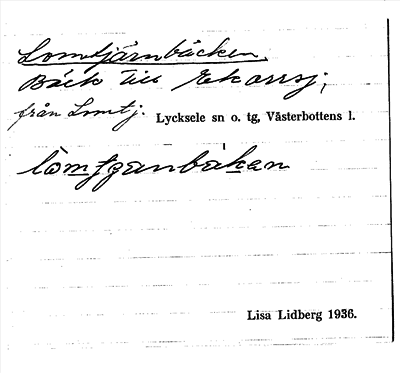 Lomtjärnbäcken,
Bäck till Ekorrsj,
från Lomtj. Lycksele sn o. tg, Västerbottens l.
Lisa Lidberg 1936.